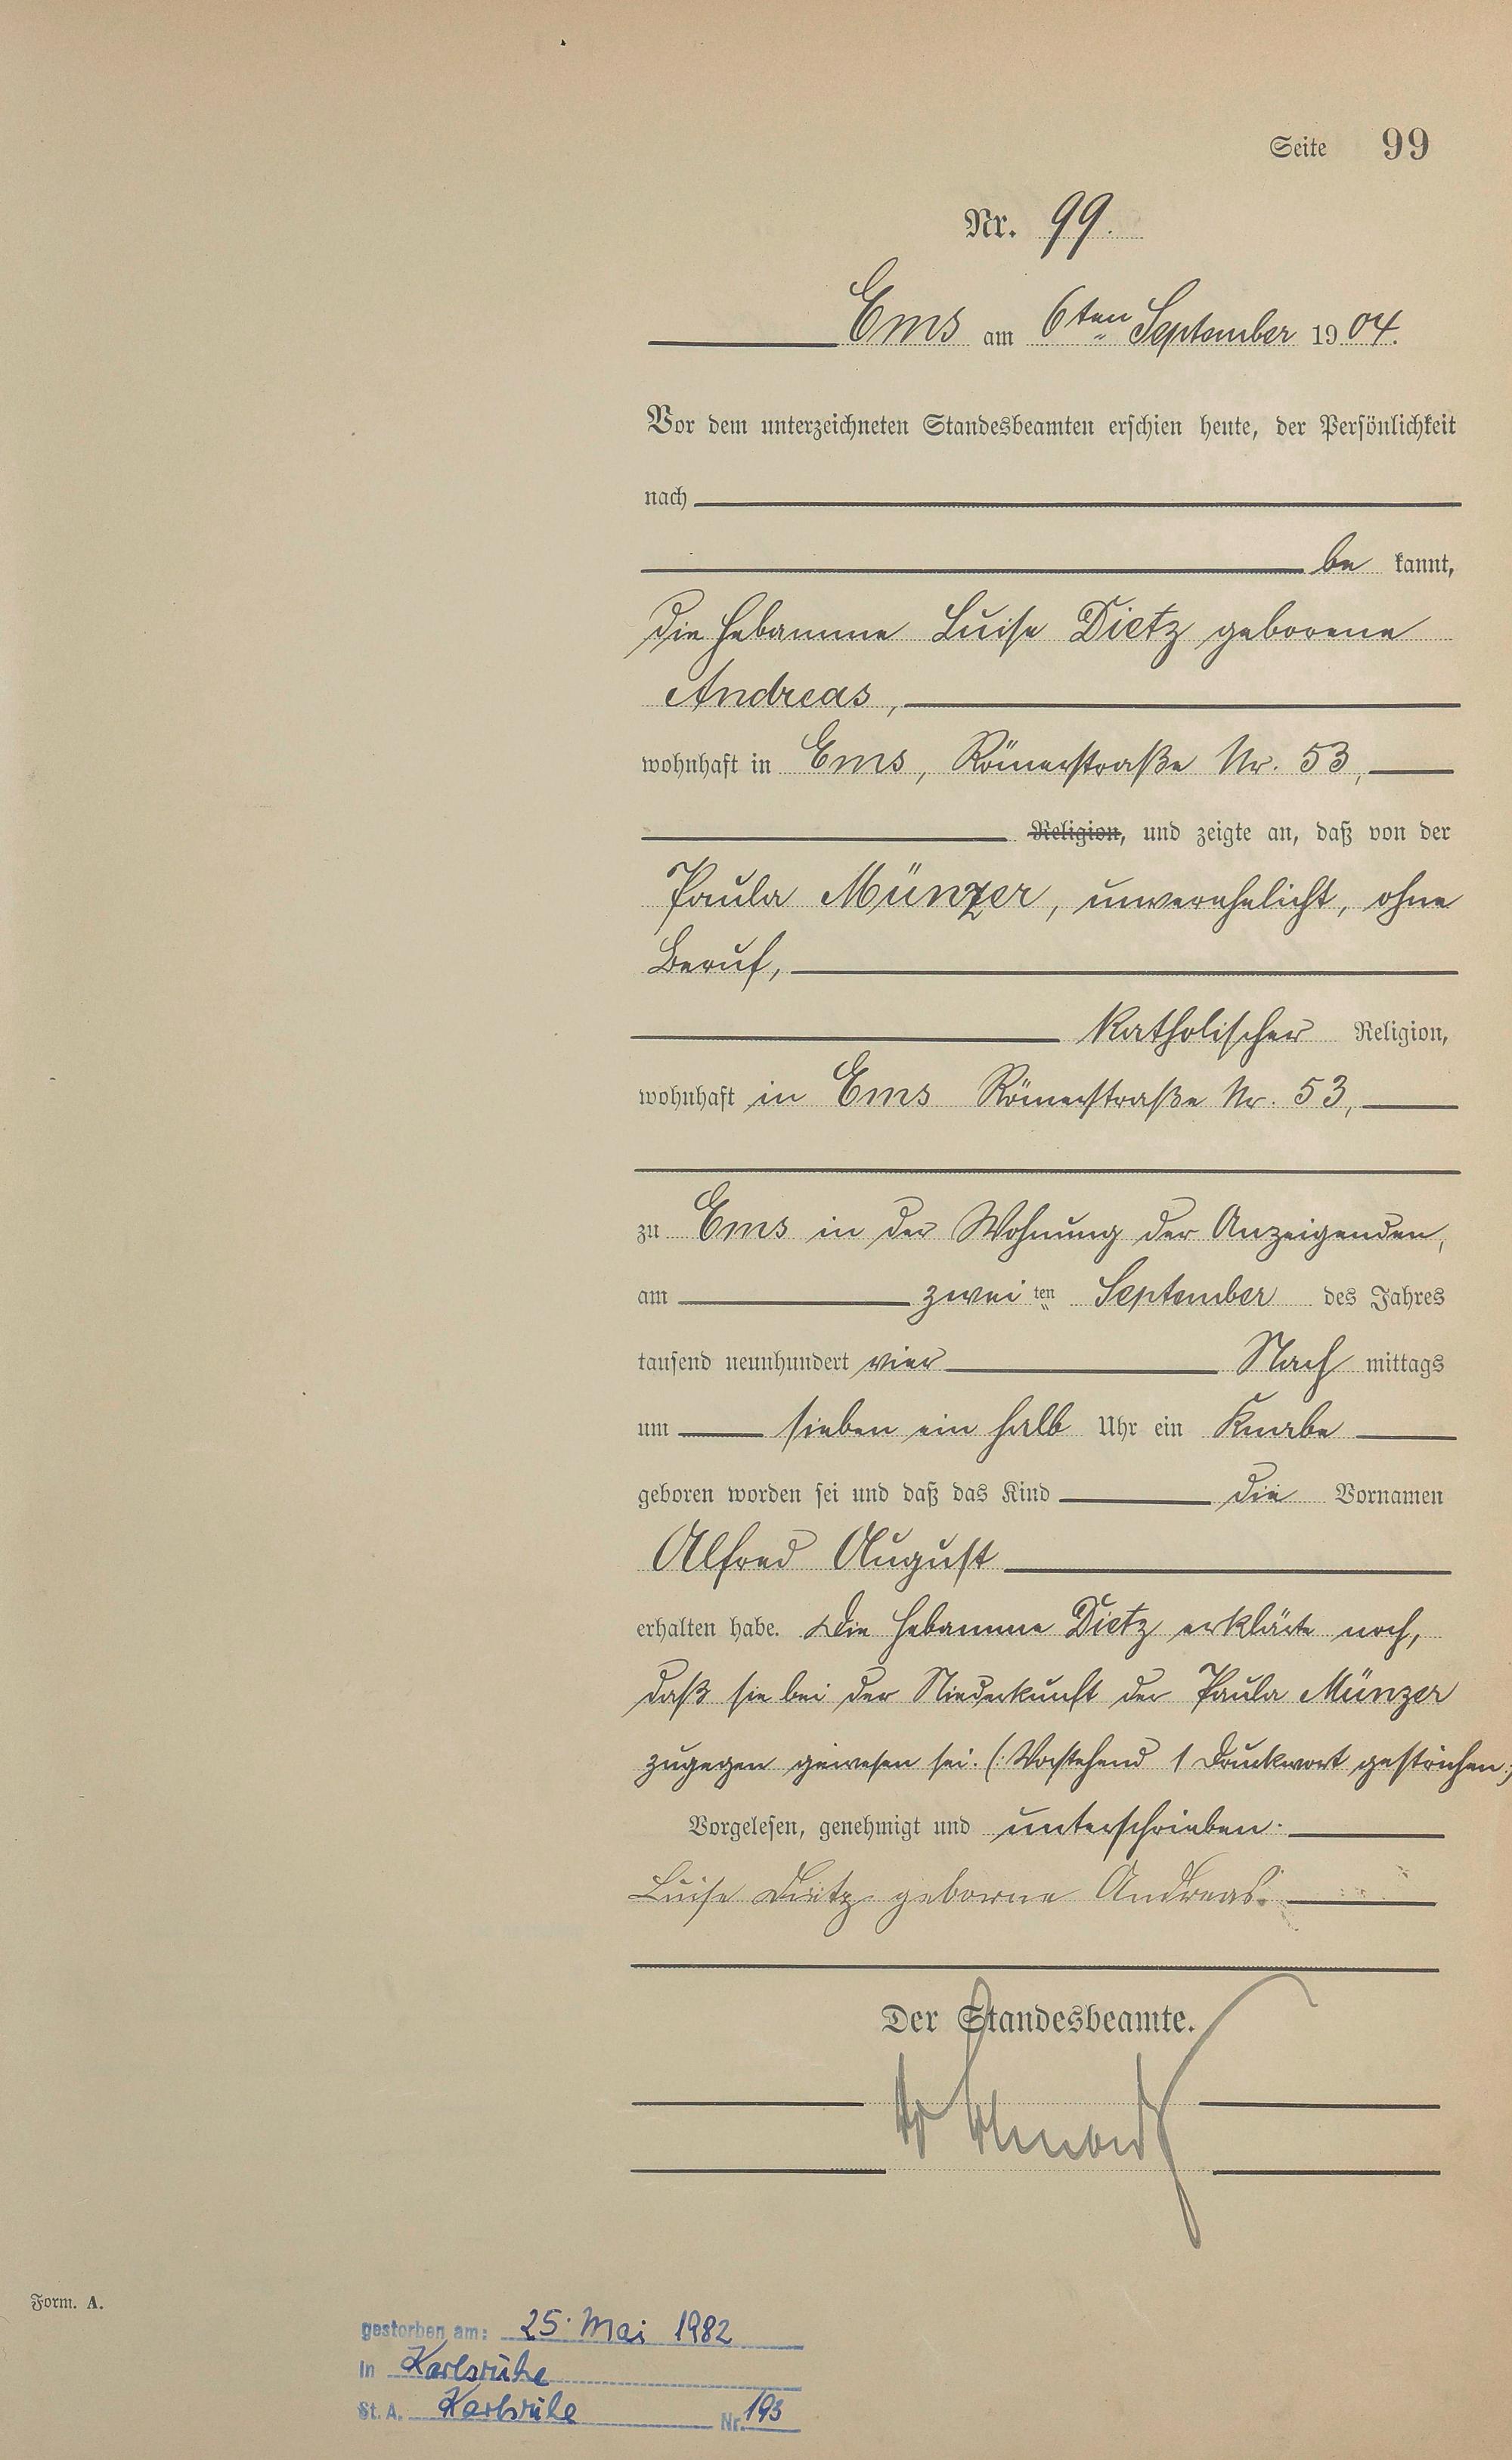 Seite 99
Nr. 99.
Ems am 6ten September 1904.
Vor dem unterzeichneten Standesbeamten erschien heute, der Persönlichkeit
nach
be kannt,
die Hebamme Luise Dietz geborene
Andreas,
wohnhaft in Ems, Römerstraße Nr. 53,
Religion, und zeigte an, daß von der
Paula Münzer, unverehelicht, ohne
Beruf,
katholischer Religion,
wohnhaft in Ems Römerstraße Nr. 53,
zu Ems in der Wohnung der Anzeigenden,
am zwei ten September des Jahres
tausend neunhundert vier Nach mittags
um sieben ein halb Uhr ein Knabe
geboren worden sei und daß das Kind die Vornamen
Alfred August
erhalten habe. Die Hebamme Dietz erklärte noch,
daß sie bei der Niederkunft der Paula Münzer
zugegen gewesen sei. (: Vorstehend 1 Druckwort gestrichen :)
Vorgelesen, genehmigt und unterschrieben.
Luise Dietz geborne Andreas.
Der Standesbeamte.
Form. A.
gestorben am: 25. Mai 1982
In Karlsruhe
St. A. Karlsruhe Nr. 193